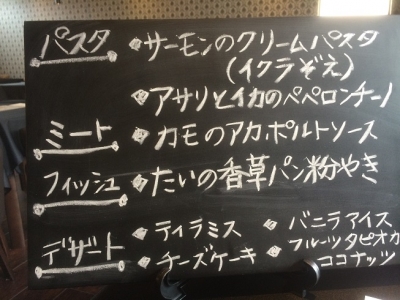 パスタ ・サーモンのクリームパスタ
(イクラぞえ)
・アサリとイカのペペロンチーノ
ミート ・カモのアカポルトソース
フィッシュ ・たいの香草パン粉やき
デザート ・ティラミス ・バニラアイス
・チーズケーキ ・フルーツタピオカ
ココナッツ